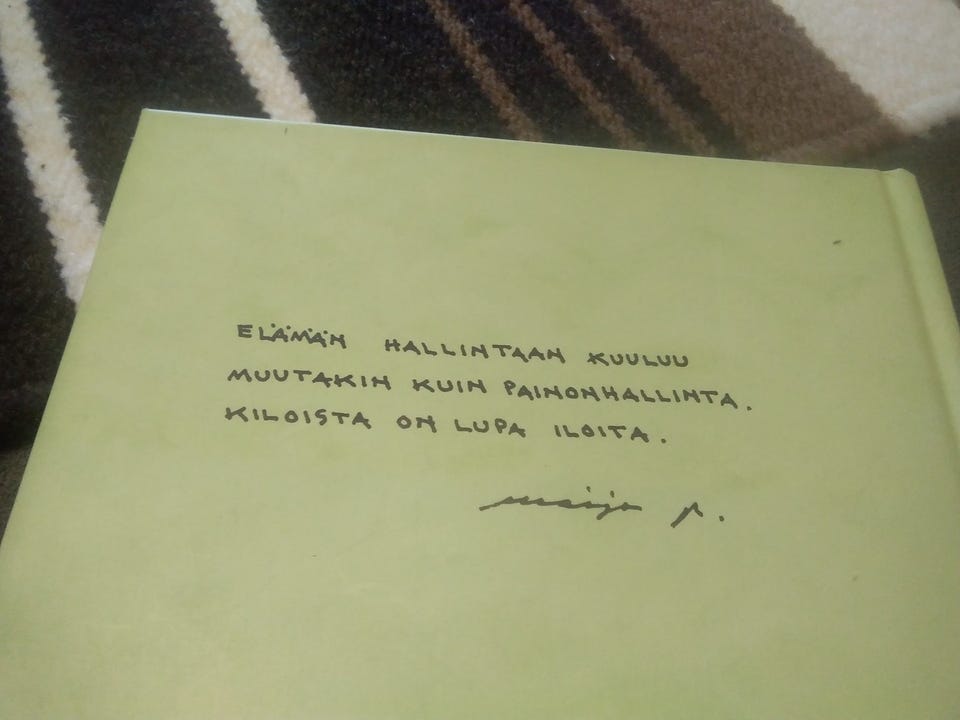 ELÄMÄN HALLINTAAN KUULUU
MUUTAKIN KUIN PAINONHALLINTA.
KILOISTA ON LUPA ILOITA.
maija p.